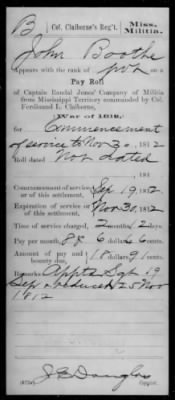 B | Col. Claiborne's Reg't. | Miss. Militia.
John Boothe
Appears with the rank of pvt on a
Pay Roll
of Captain Randal Jones' Company of Militia
from Mississippi Territory commanded by Col.
Ferdinand L. Claiborne,
War of 1812,
for Commencement
of service to Nov 30, 1812
Roll dated Not dated
, 181
Commencement of service or of this settlement, Sep 19, 1812
Expiration of service or of this settlement, Nov 30, 1812
Time of service charged, 2 months 12 days
Pay per month, 8 dollars 66 cents.
Amount of pay and bounty due, 18 dollars 91 cents.
Remarks: Appt'd Sgt 19
Sep & reduced 25 Nov
1812
J E Douglas
Copyist.